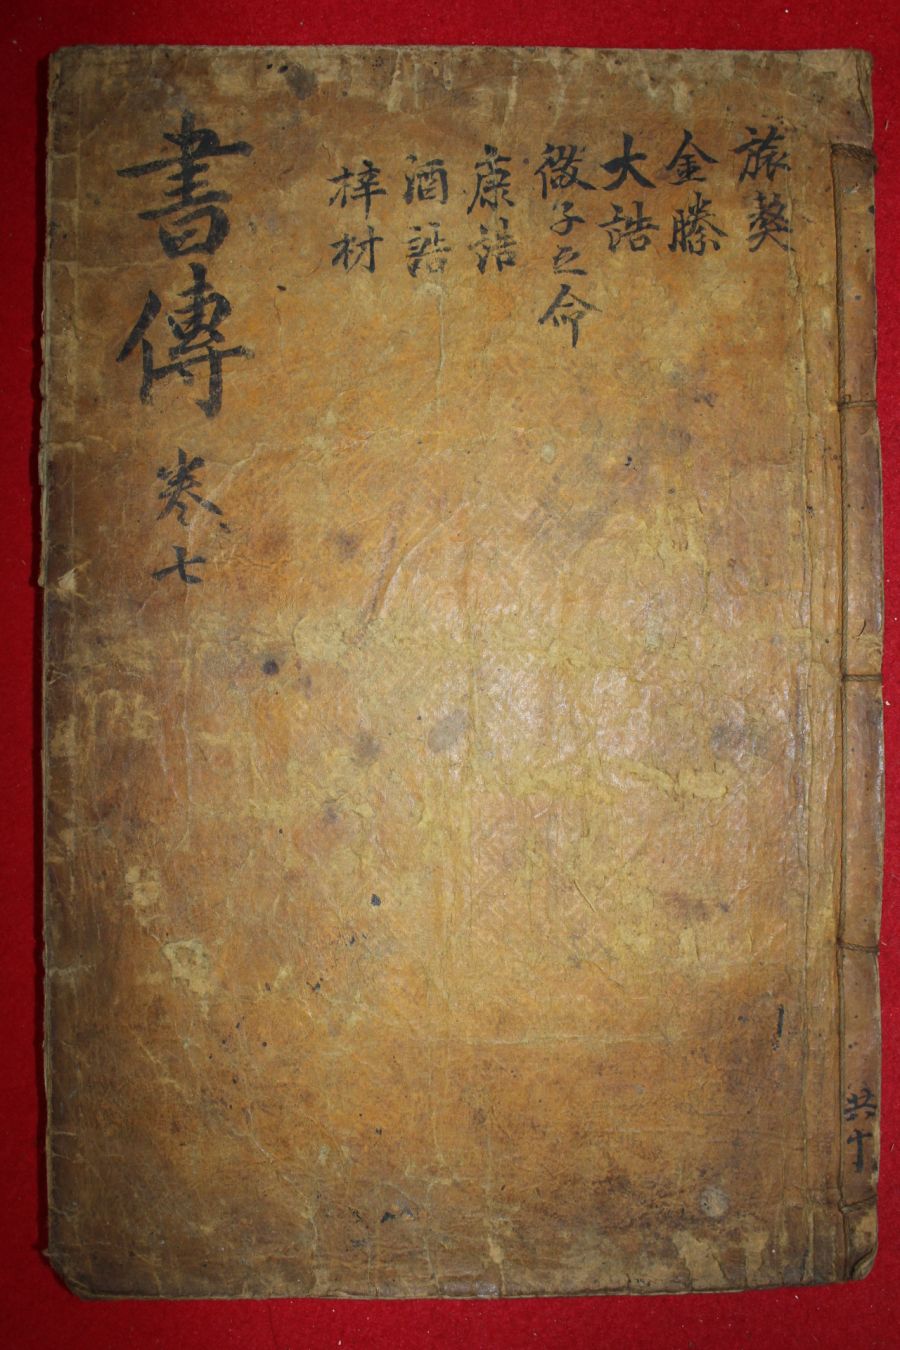 旅獒
金縢
大誥
微子之命
康誥
酒誥
梓材
書傳 卷七
共十